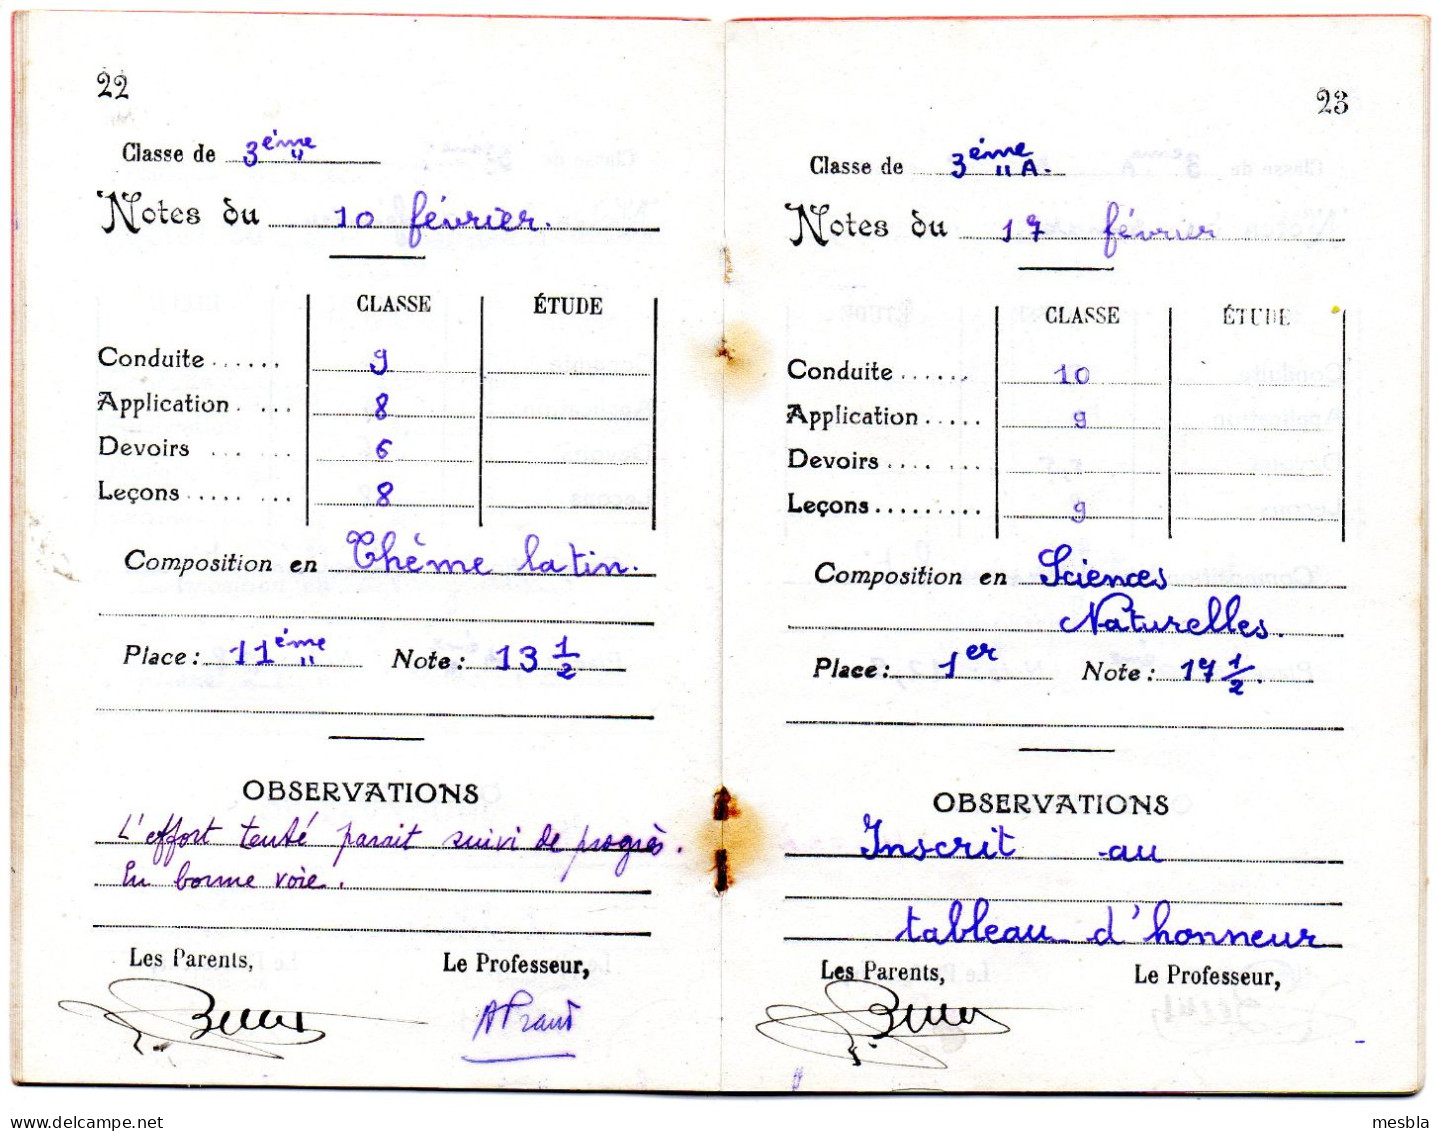 22
Classe de 3ème "
Notes du 10 février.
CLASSE ÉTUDE
Conduite ...... 9
Application . ... 8
Devoirs ... ... 6
Leçons ..... ... 8
Composition en Thème latin.
Place : 11ème " Note : 13 1/2
OBSERVATIONS
L'effort tenté parait suivi de progrès.
En bonne voie.
Les Parents, Le Professeur,
23
Classe de 3ème " A.
Notes du 17 février
CLASSE ÉTUDE
Conduite ...... 10
Application ..... 9
Devoirs .... ...
Leçons ......... 9
Composition en Sciences
Naturelles.
Place : 1er Note : 17 1/2.
OBSERVATIONS
Inscrit au
tableau d'honneur
Les Parents, Le Professeur,
www.delcampe.net
mesbla